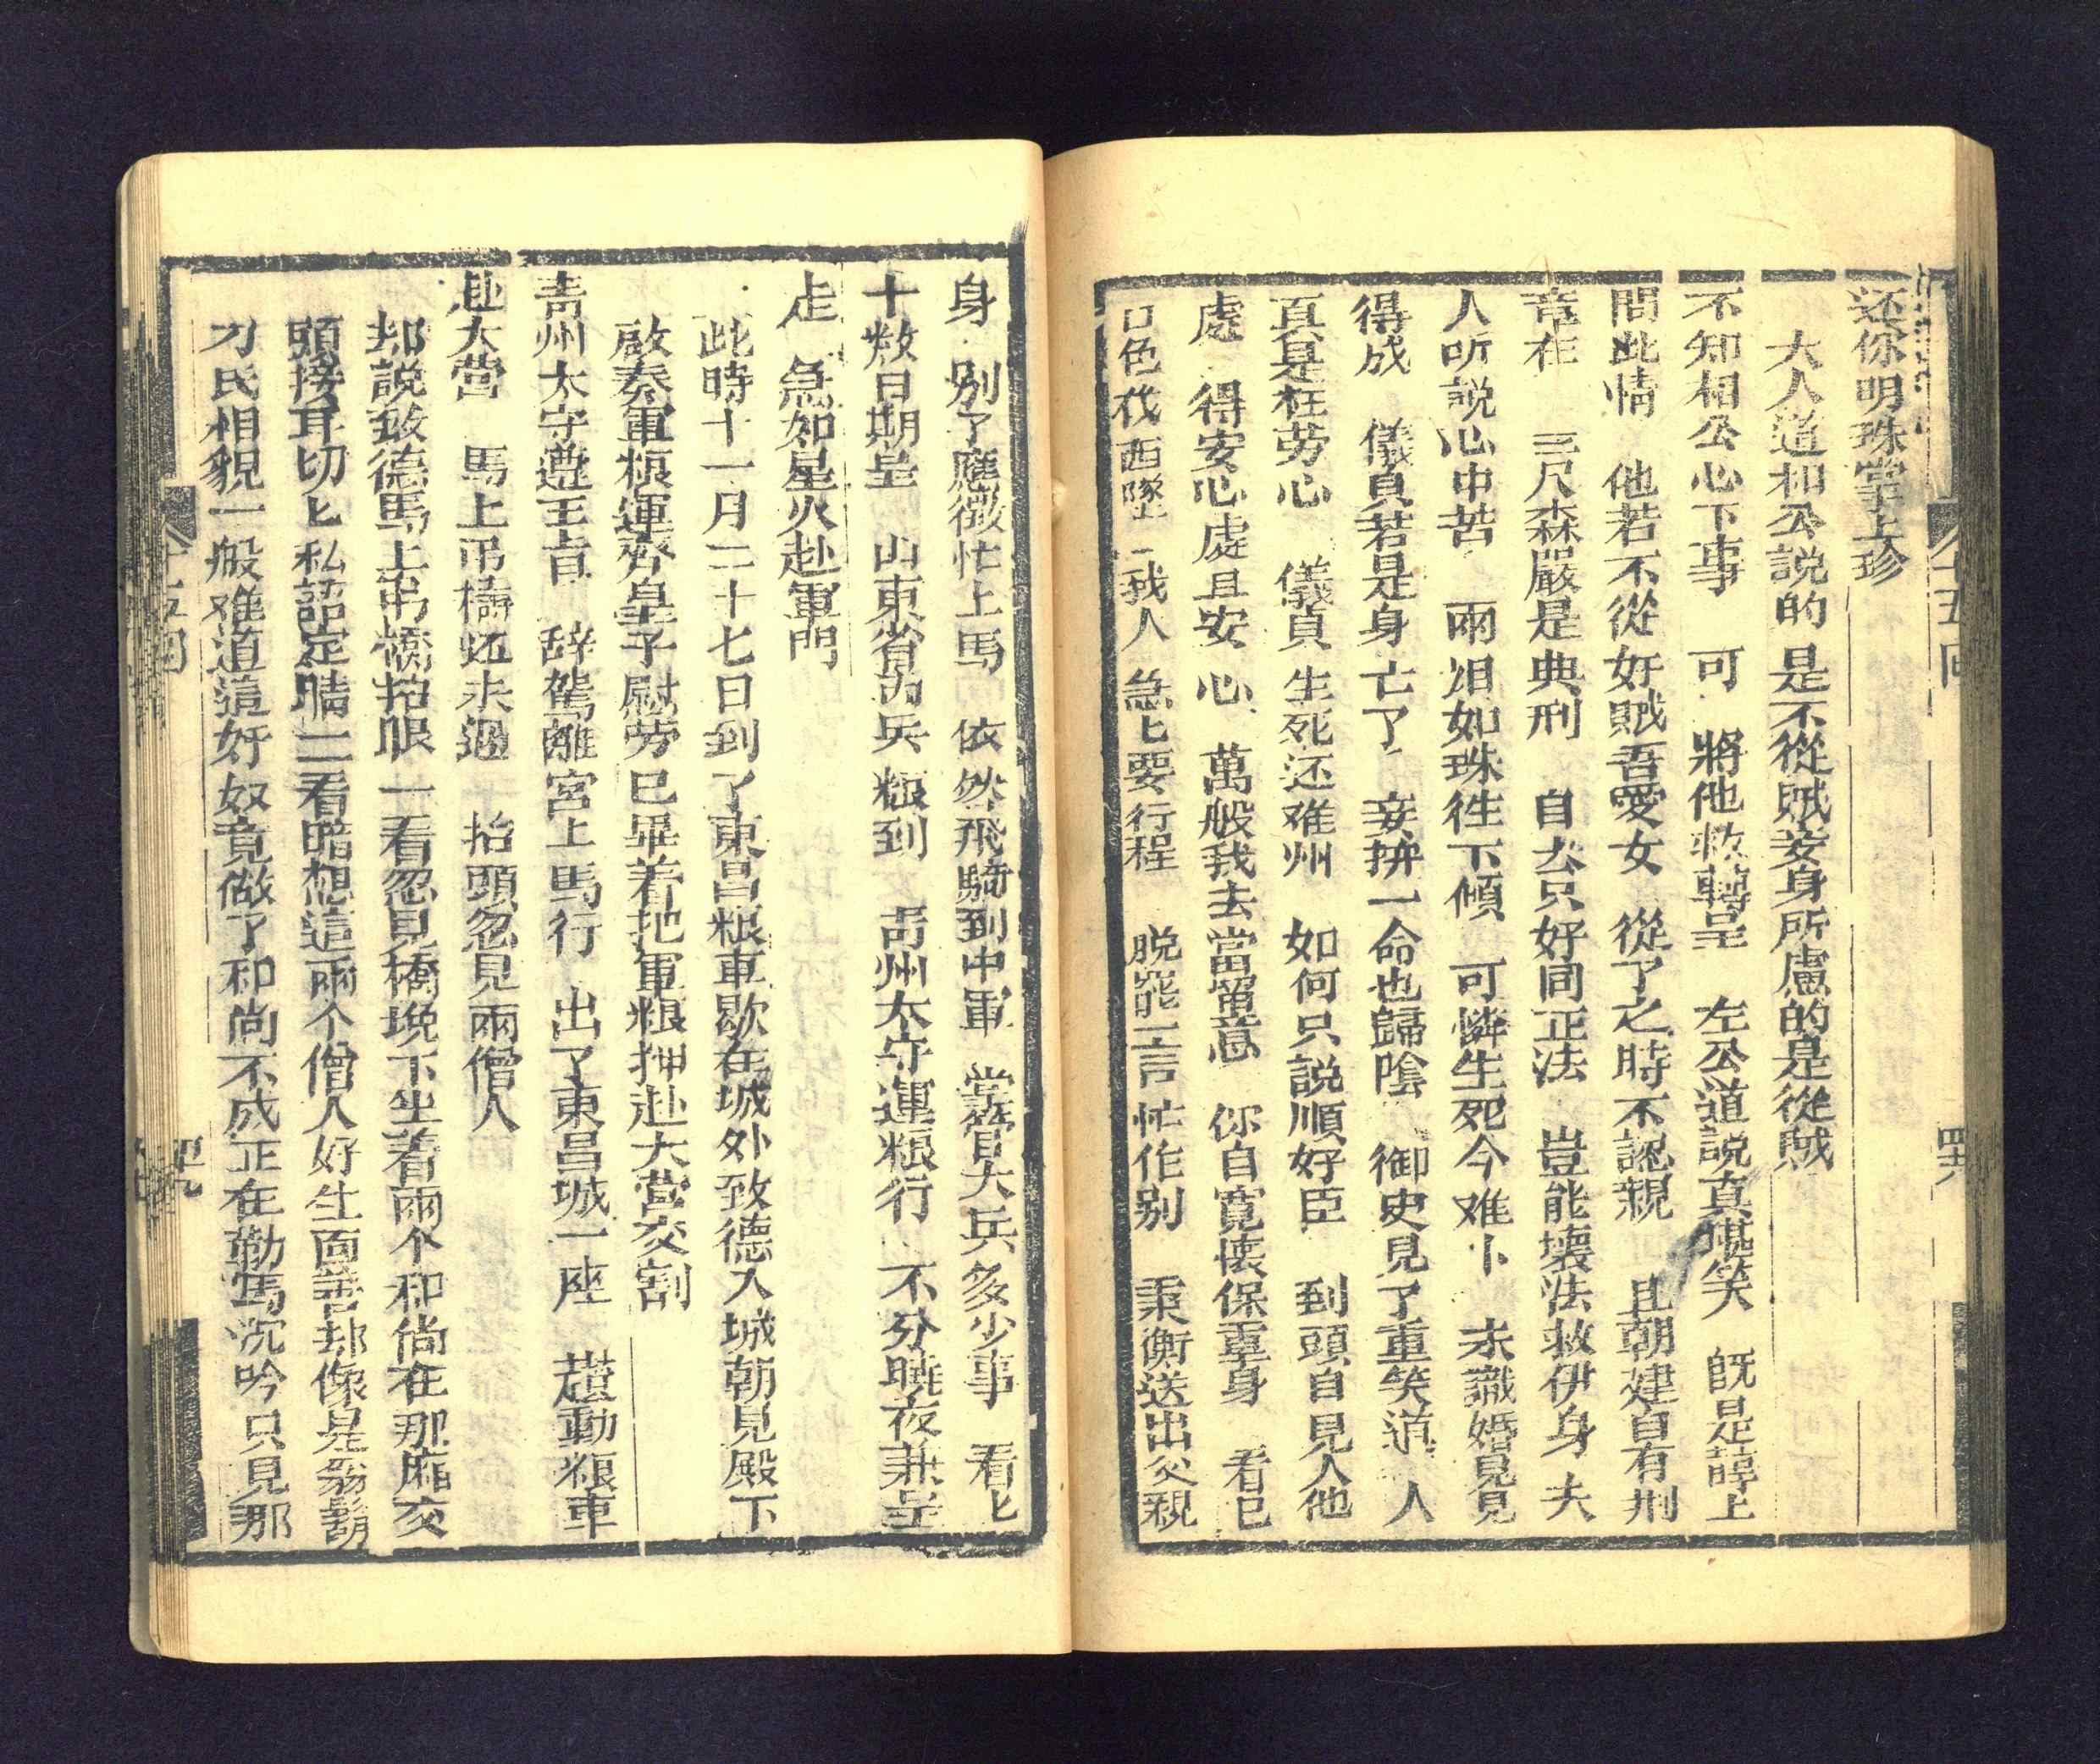 还你明珠掌上珍
大人道相公説的 是不從賊妾身所慮的是從賊
不知相公心下事 可 將他救轉呈 左公道説真堪笑 既是諄上
問此情 他若不從奸賊吾愛女 從了之時不認親 且朝建自有刑
章在 三尺森嚴是典刑 自厺只好同正法 豈能壞法救伊身 夫
人听説心中苦 兩泪如珠徃下傾 可憐生死今难卜 未識婚見見
得成 儀貞若是身亡了 妾拚一命也歸陰 御史見了重笑道 人
真是枉劳心 儀貞生死还难州 如何只説順奸臣 到頭自見人他
處 得安心處且安心 萬般我去當留意 你自寬懷保重身 看已
口色伐西墜 我人急匕要行程 脱 一言忙作别 秉衡送出父親
身 别了應徵忙上馬 依然飛騎到中軍 掌管大兵多少事 看匕
十数日期呈 山東省内兵粮到 青州太守運粮行 不分曉夜兼呈
走 急如星火赴軍門
此時十一月二十七日到了東昌粮車歇在城外致德入城朝見殿下
啟奏軍粮運齊皇子慰劳已畢着把軍粮押赴大營交割
青州太守遵王㫖 辞駕離宮上馬行 出了東昌城一座 趲動粮車
赴大營 馬上吊橋还未過 抬頭忽見兩僧人
却説致德馬上吊橋抬眼一看忽見橋堍下坐着兩个和尚在那廂交
頭接耳切匕私語定睛一看暗想這兩个僧人好生面善却像是翁鬍
刁氏相貌一般难道這奸奴竟做了和尚不成正在勒馬沉吟只見那
十五回
四八
十五回
四九